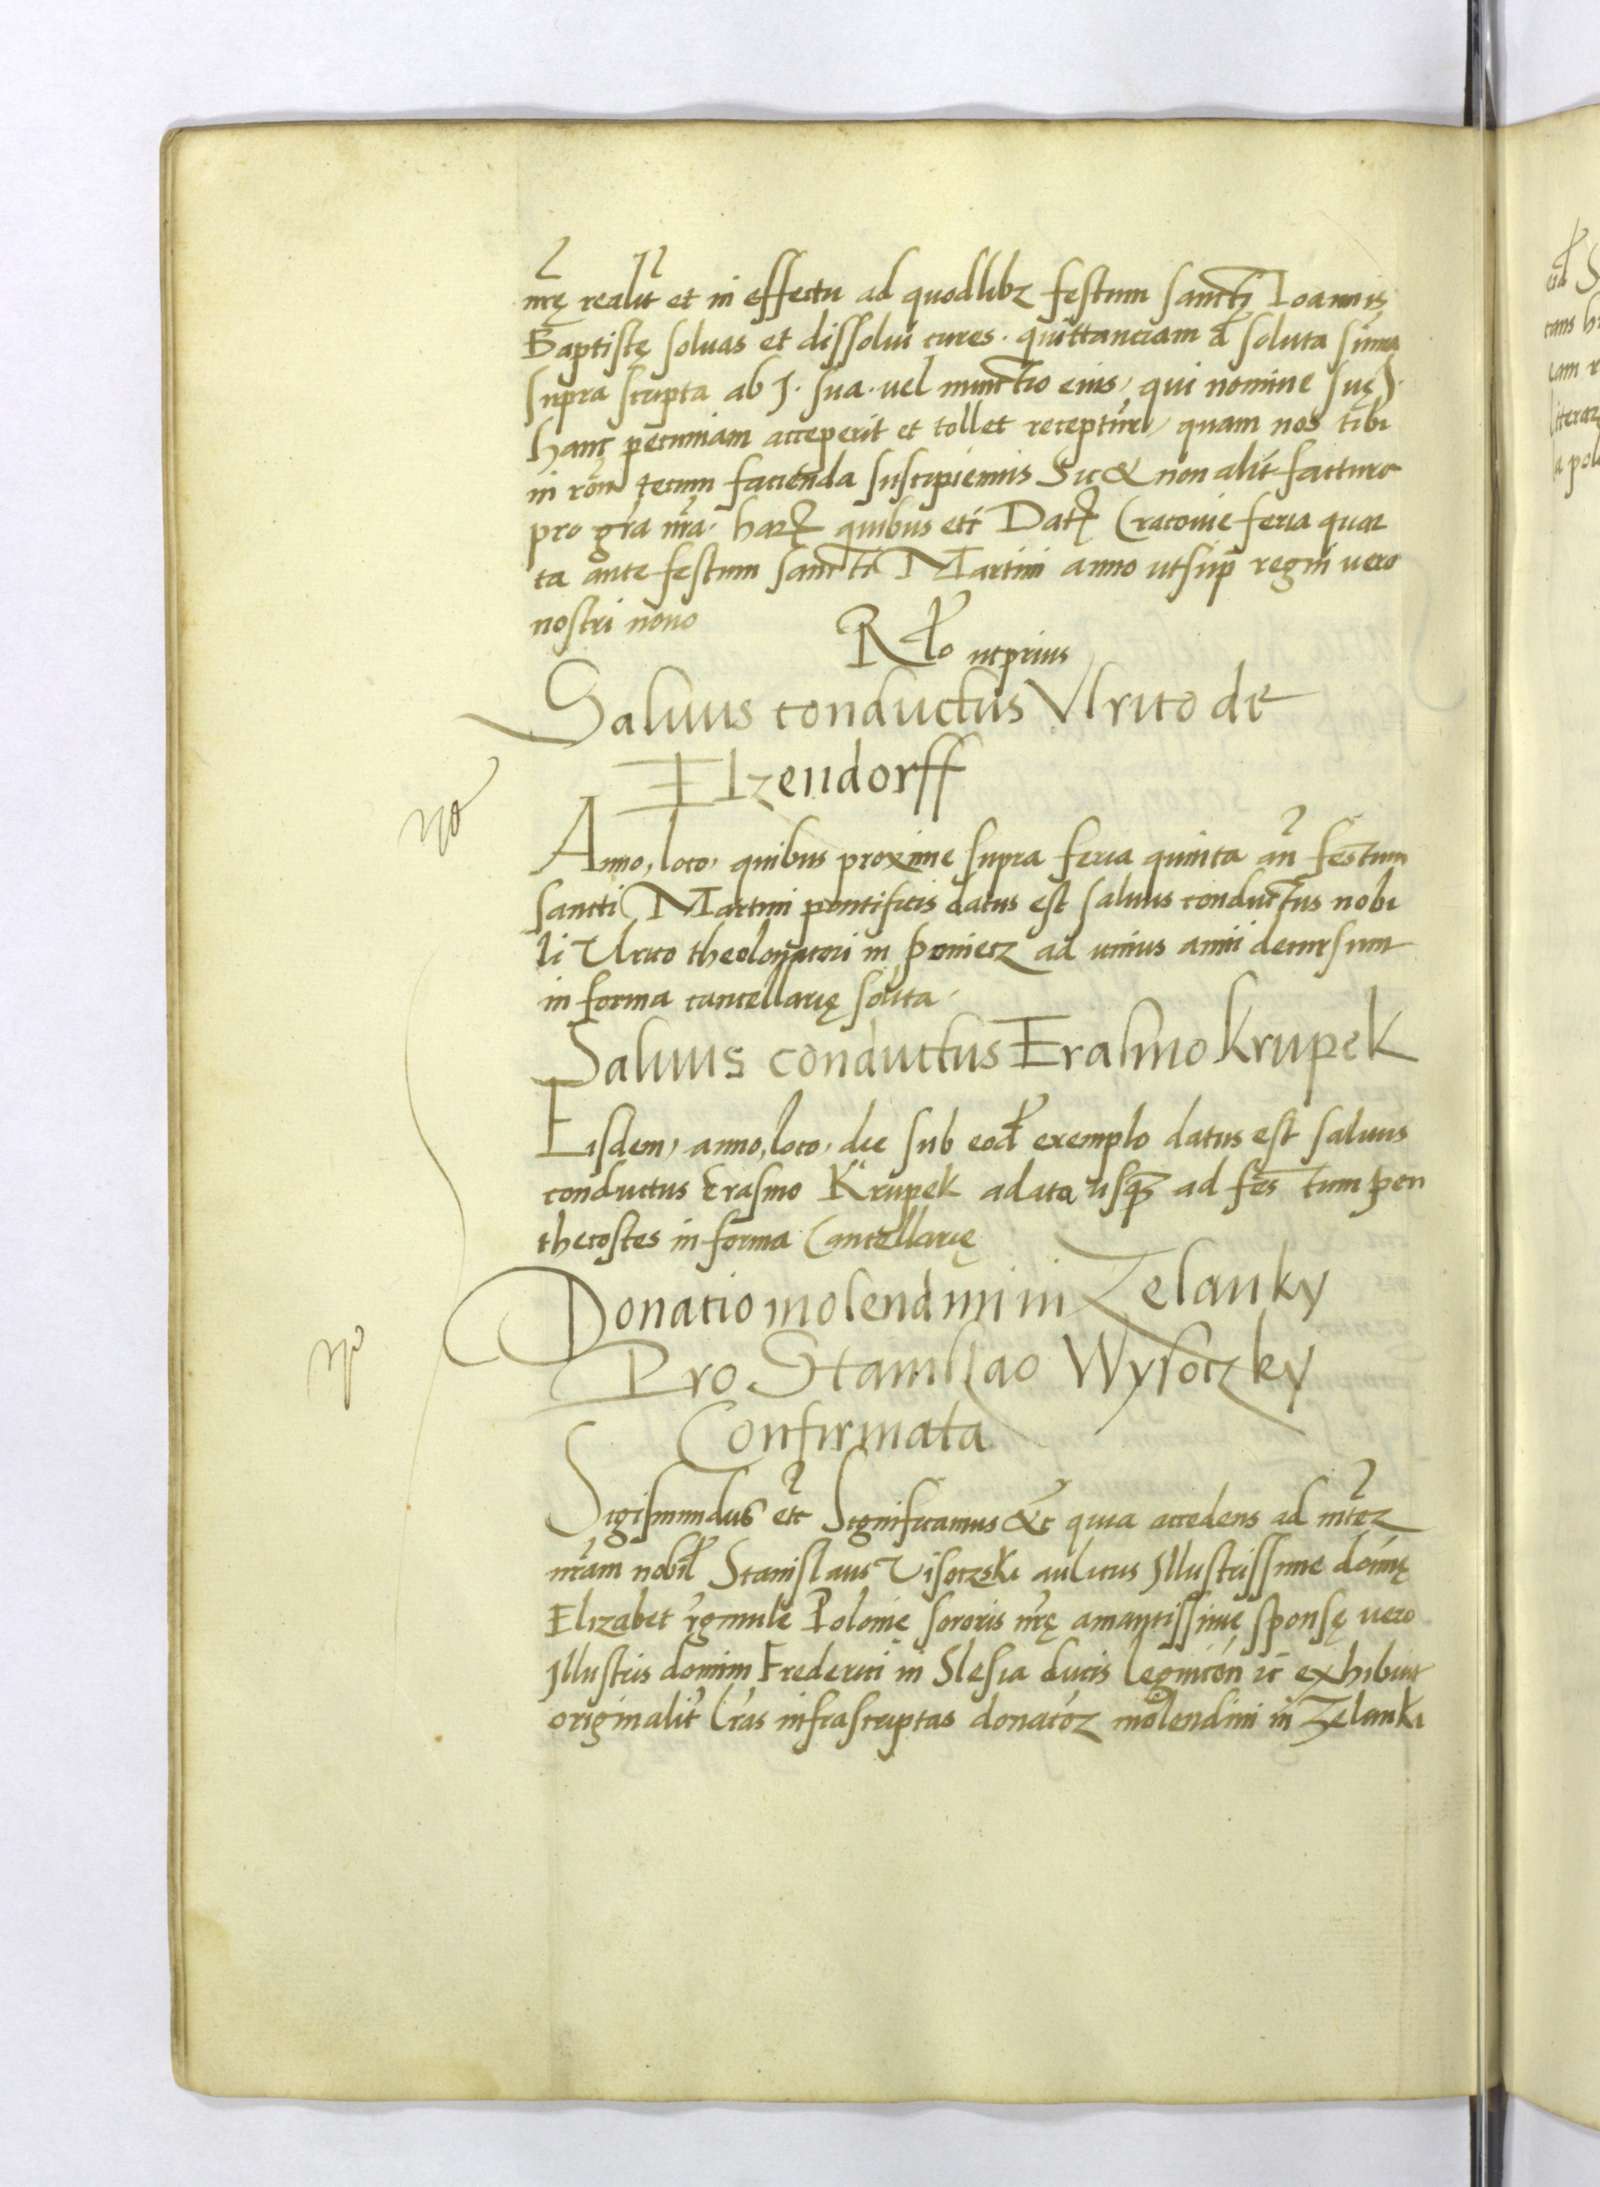 nrę realit et in effectu ad quodlibz festum sancti Ioannis
Baptistę soluas et dissolui cures. quittanciam d soluta suma
supra scripta ab J. sua. vel nunctio eius, qui nomine suę J.
hanc pecuniam acceperit et tollet receptur, quam nos tibi
in rōm tecum facienda suscipiemus Sic & non alit facturo
pro gra nra. harz quibus etc Datz Cracovie feria quar
ta ante festum sancti Martini anno utsup regni vero
nostri nono
Rlo utprius
Saluus conductus Vlrico de
Elzendorff
no
Anno, loco, quibus proxime supra feria quinta an festum
sancti Martini pontificis datus est saluus conductus nobi
li Ulrico theolonatori in poniecz ad unius anni decursum
in forma cancellarię solita.
Saluus conductus Erasmo Krupek
Eisdem, anno, loco, die sub eod exemplo datus est saluus
conductus Erasmo Krupek adata usqz ad fes tum pen
thecostes in forma Cancellarię
Donatio molendini in Zelanky
Pro Stanislao Wysoczky
Confirmata
no
Sigismundus etc Significamus &c quia accedens ad mtez
nram nobil Stanislaus Visoczski aulicus Illustrissime domię
Elizabet rgnule Polonie sororis nrę amantissimę sponsę vero
Illustris domini Frederici in Slesia ducis legnicen ic exhibuit
originalit lras infrascriptas donacoz molendini in Zelanki